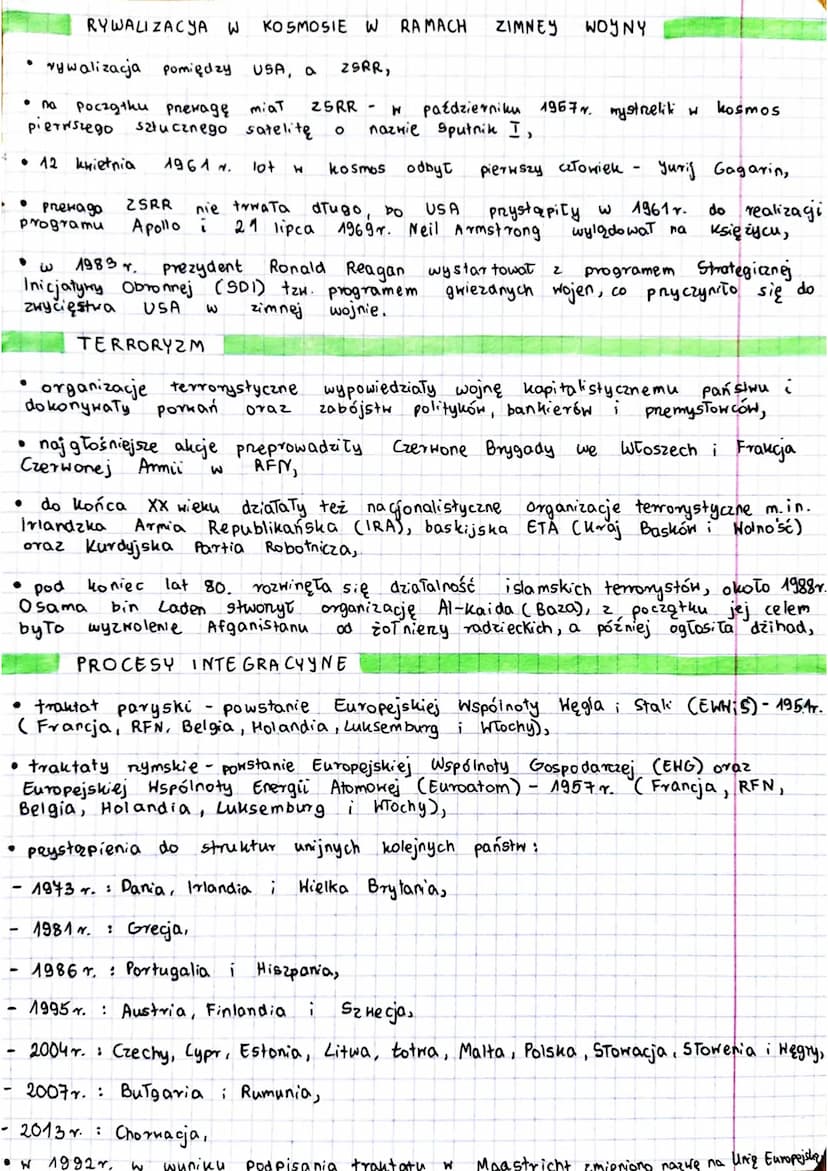 RYWALIZACJA W KOSMOSIE W RAMACH ZIMNEJ WOJNY
• rywalizacja pomiędzy USA, a ZSRR,
• na początku przewagę miał ZSRR - w październiku 1967r. wystrzelili w kosmos
pierwszego sztucznego satelitę o nazwie Sputnik I,
• 12 kwietnia 1961 r. lot w kosmos odbył pierwszy człowiek - Jurij Gagarin,
• przewaga ZSRR nie trwała długo, bo USA przystąpiły w 1961r. do realizacji
programu Apollo i 21 lipca 1969r. Neil Armstrong wylądował na Księżycu,
• w 1983 r. prezydent Ronald Reagan wystartował z programem Strategicznej
Inicjatywy Obronnej (SDI) tzw. programem gwiezdnych wojen, co przyczyniło się do
zwycięstwa USA w zimnej wojnie.
TERRORYZM
• organizacje terrorystyczne wypowiedziały wojnę kapitalistycznemu państwu i
dokonywały porwań oraz zabójstw polityków, bankierów i przemysłowców,
• najgłośniejsze akcje przeprowadziły Czerwone Brygady we Włoszech i Frakcja
Czerwonej Armii w RFN,
• do końca XX wieku działały też nacjonalistyczne organizacje terrorystyczne m.in.
Irlandzka Armia Republikańska (IRA), baskijska ETA (Kraj Basków i Wolność)
oraz Kurdyjska Partia Robotnicza,
• pod koniec lat 80. rozwinęła się działalność islamskich terrorystów, około 1988r.
Osama bin Laden stworzył organizację Al-Kaida (Baza), z początku jej celem
było wyzwolenie Afganistanu od żołnierzy radzieckich, a później ogłosiła dżihad,
PROCESY INTEGRACYJNE
• traktat paryski - powstanie Europejskiej Wspólnoty Węgla i Stali (EWWiS) - 1951r.
(Francja, RFN, Belgia, Holandia, Luksemburg i Włochy),
• traktaty rzymskie - powstanie Europejskiej Wspólnoty Gospodarczej (EWG) oraz
Europejskiej Wspólnoty Energii Atomowej (Euroatom) - 1957r. (Francja, RFN,
Belgia, Holandia, Luksemburg i Włochy),
• przystąpienia do struktur unijnych kolejnych państw:
- 1973 r. : Dania, Irlandia i Wielka Brytania,
- 1981r. : Grecja,
- 1986 r. : Portugalia i Hiszpania,
- 1995r. : Austria, Finlandia i Szwecja,
- 2004r. : Czechy, Cypr, Estonia, Litwa, Łotwa, Malta, Polska, Słowacja, Słowenia i Węgry,
- 2007r. : Bułgaria i Rumunia,
- 2013r. : Chorwacja,
• w 1992r. w wyniku podpisania traktatu w Maastricht zmieniono nazwę na Unię Europejską